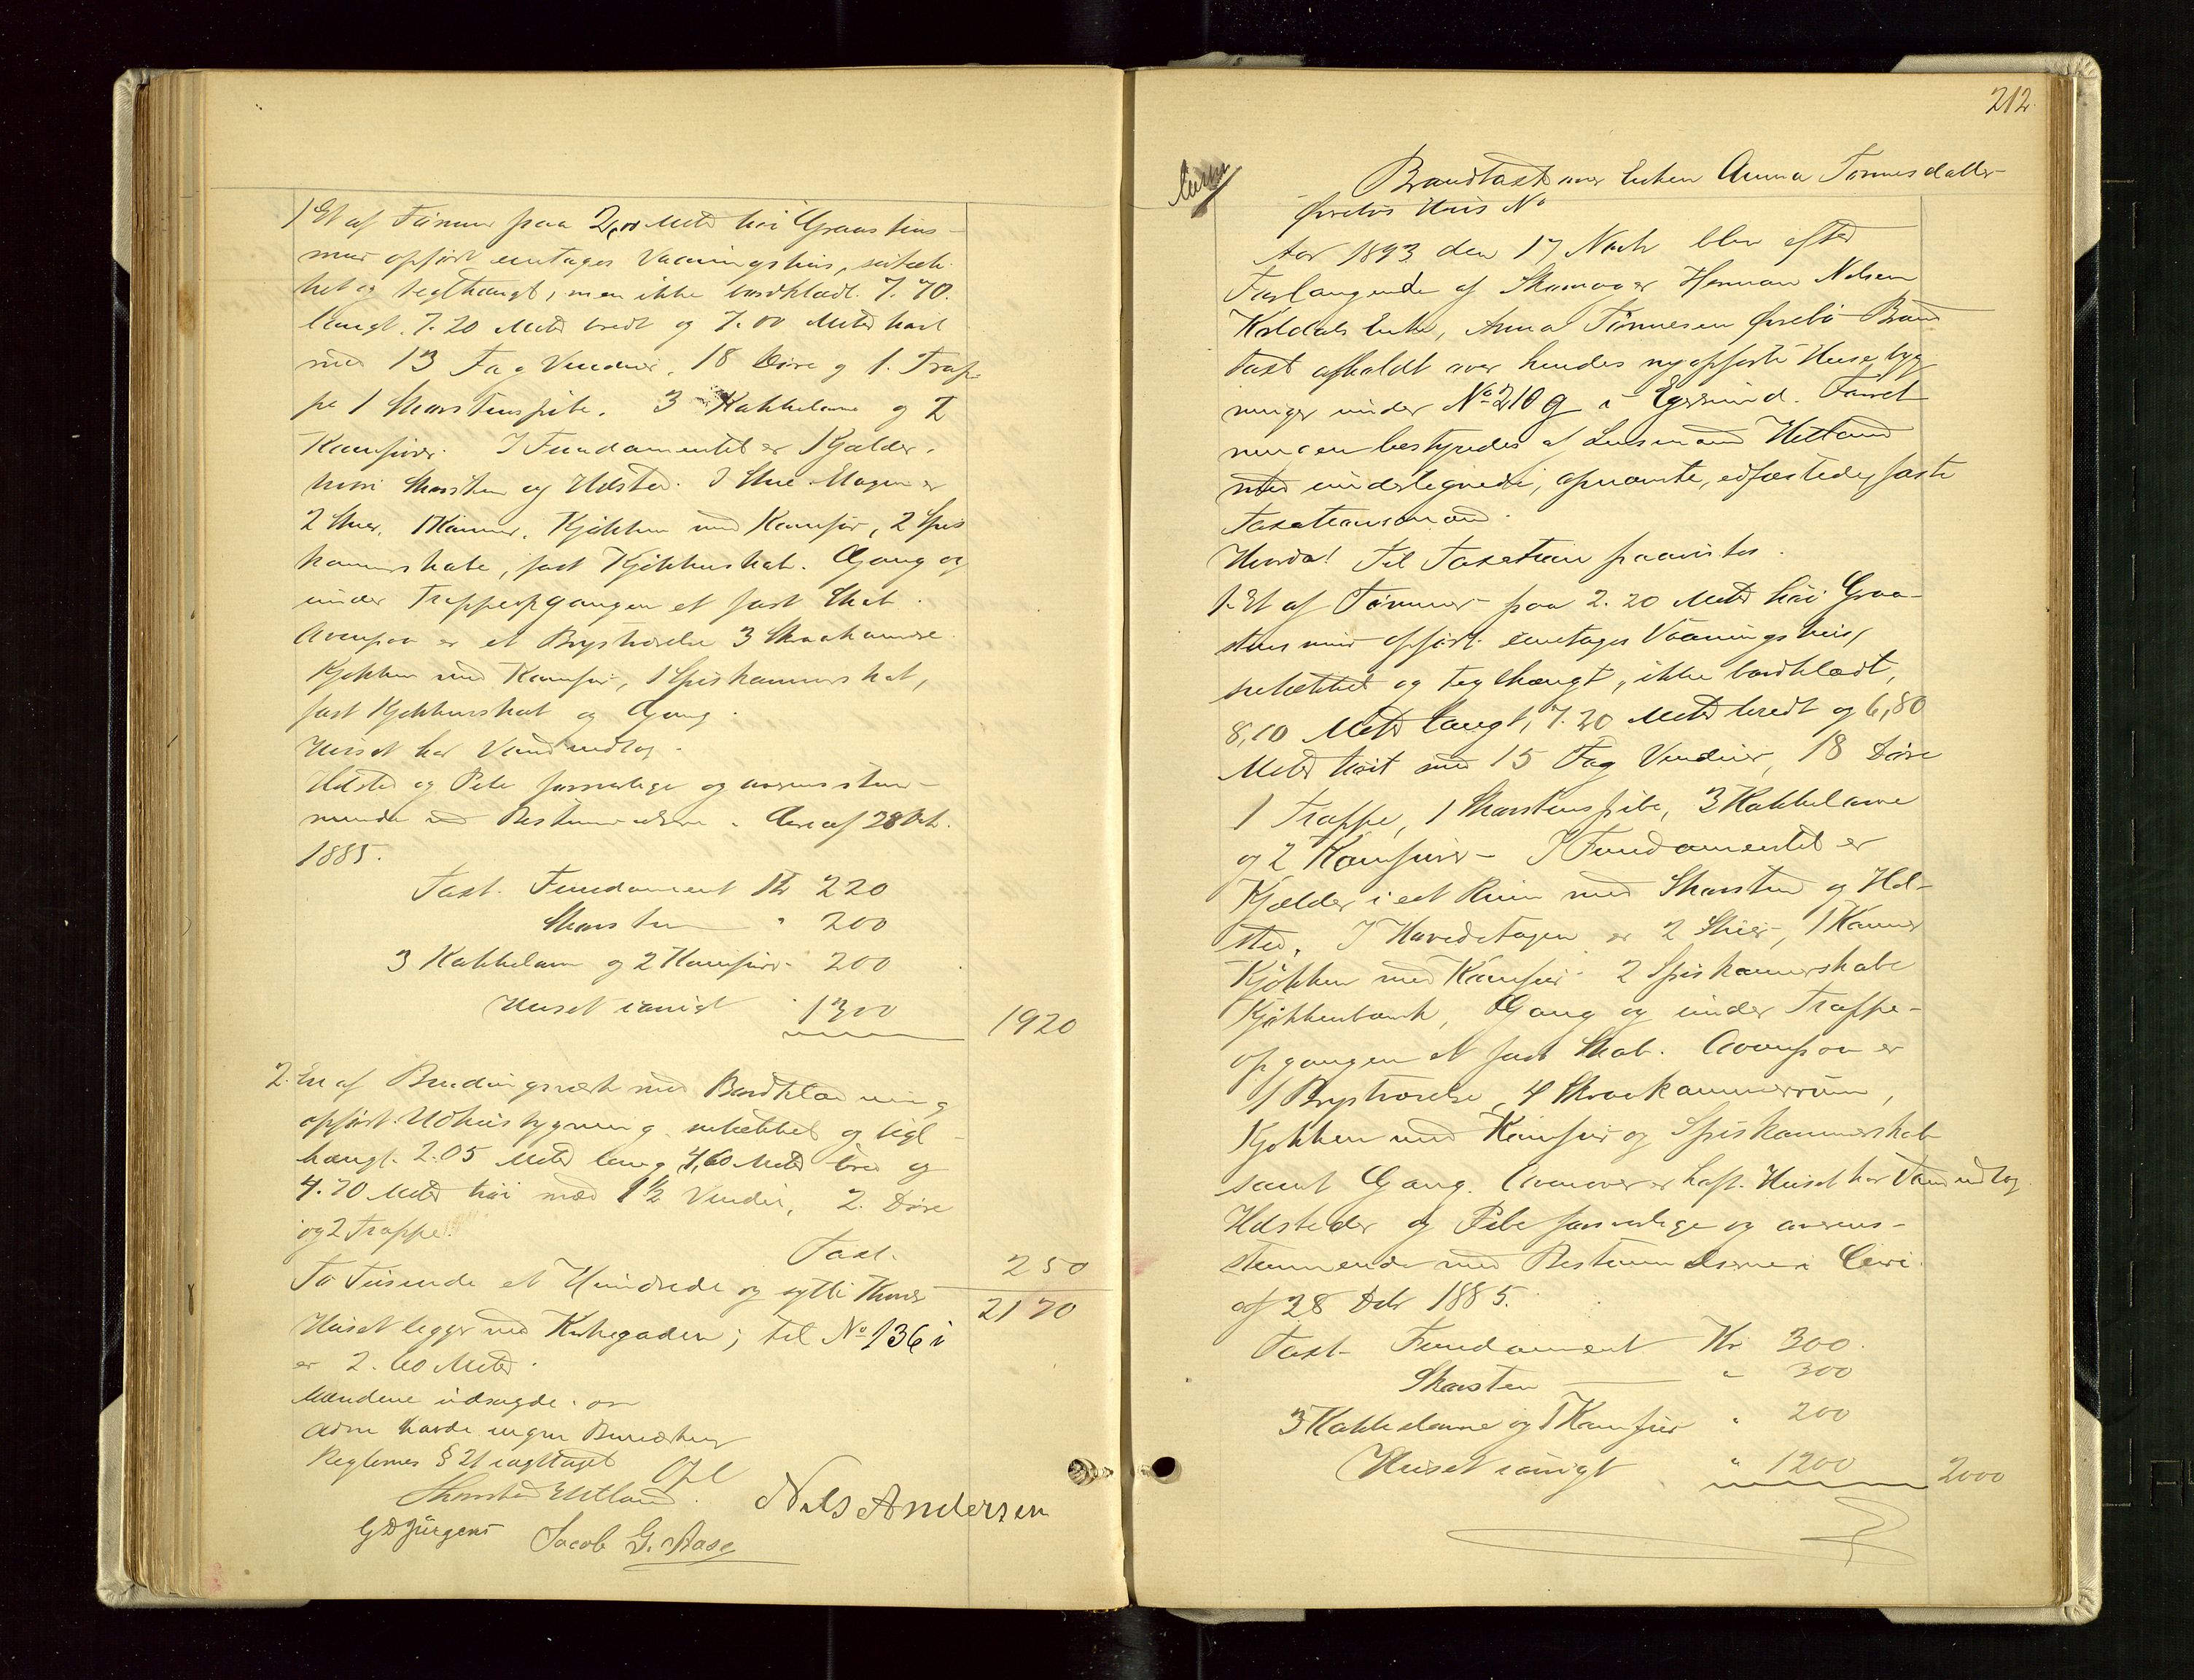 1 Et af Tømmer paa 2,00 Meter høi Graastens-
mur opført eenetages Vaaningshus, sutæk-
ket og teglhængt, men ikke bordklædt. 7.70.
langt. 7.20 Meter bredt og 7.00 Meter høit
med 13 Fag Vinduer, 18 Døre og 1. Trap-
pe 1 Skorstenspibe. 3 Kakkelovne og 2
Komfurer. I Fundamentet er 1 Kjælder,
hvori Skorsten og Ildsted. I Stue-Etagen er
2 Stuer, 1 Kammer, Kjøkken med Komfur, 2 Spis
kammerskabe, fast Kjøkkenskab. Gang og
under Trappeopgangen et fast Skab.
Ovenpaa er et Brystværelse 3 Skraakamre.
Kjøkken med Komfur, 1 Spiskammerskab,
fast Kjøkkenskab og Gang.
Huset har Vandindlæg.
Ildsted og Pibe forsvarlige og overensstem-
mende med Bestemmelserne. Circ af 28 Dcb.
1885.
Taxt. Fundament Kr 220
Skorsten " 200
3 Kakkelovne og 2 Komfurer " 200
Huset iøvrigt " 1300 1920
2. En af Bindingsværk med Bordklædning
opført Udhusbygning sutækket og tegl-
hængt. 2.05 Meter lang 4,60 Meter bred og
4.70 Meter høi med 1 1/2 Vindu, 2. Døre
og 2 Trapper.
Taxt. 250
To Tusinde et Hundrede og sytti Kroner 2170
Huset ligger ved Kirkegaden; til No 136 i
er 2.60 Meter.
Mændene udsagde.
havde ingen Bemærkning
Reglernes § 21 iagttaget
Opl
Thorsten Hetland. Nils Andersen
G D Jürgens Jacob G. Aase
212.
Brandtaxt over Enken Anna Tønnesdatter
Øvrebøs Hus No
Aar 1893 den 17 Novbr blev efter
Forlangende af Skomager Herman Nilsen
Koldals Enke, Anna Tønnesen Øvrebø Brand
taxt afholdt over hendes nyopførte Husebyg
ninger under No 210 g i Egersund. Forret
ningen bestyredes af Lensmand Hetland
med undertegnede, opnævnte, edfæstede, faste
Taxationsmænd.
Hvorda! Til Taxation paavistes.
1. Et af Tømmer paa 2.20 Meter høi Graa-
stensmur opført eenetages Vaaningshus,
sutækket og teglhængt, ikke bordklædt,
8,10 Meter langt, 7.20 Meter bredt og 6,80
Meter høit med 15 Fag Vinduer, 18 Døre
1 Trappe, 1 Skorstenspibe, 3 Kakkelovne
og 2 Komfurer - I Fundamentet er
Kjælder i eet Rum med Skorsten og Ild-
sted. I Hovedetagen er 2 Stuer, 1 Kammer
Kjøkken med Komfur. 2 Spiskammerskabe
Kjøkkenbænk, Gang og under Trappe-
opgangen et fast Skab. Ovenpaa er
1 Brystværelse, 4 Skraakammerrum,
Kjøkken med Komfur og Spiskammerskab
samt Gang. Ovenover er Loft. Huset har Vandindlæg.
Ildsteder og Pibe forsvarlige og overens-
stemmende med Bestemmelserne i Circ.
af 28 Dcbr 1885.
Taxt- Fundament Kr 300.
Skorsten " 300
3 Kakkelovne og 1 Komfur " 200
Huset iøvrigt " 1200 2000